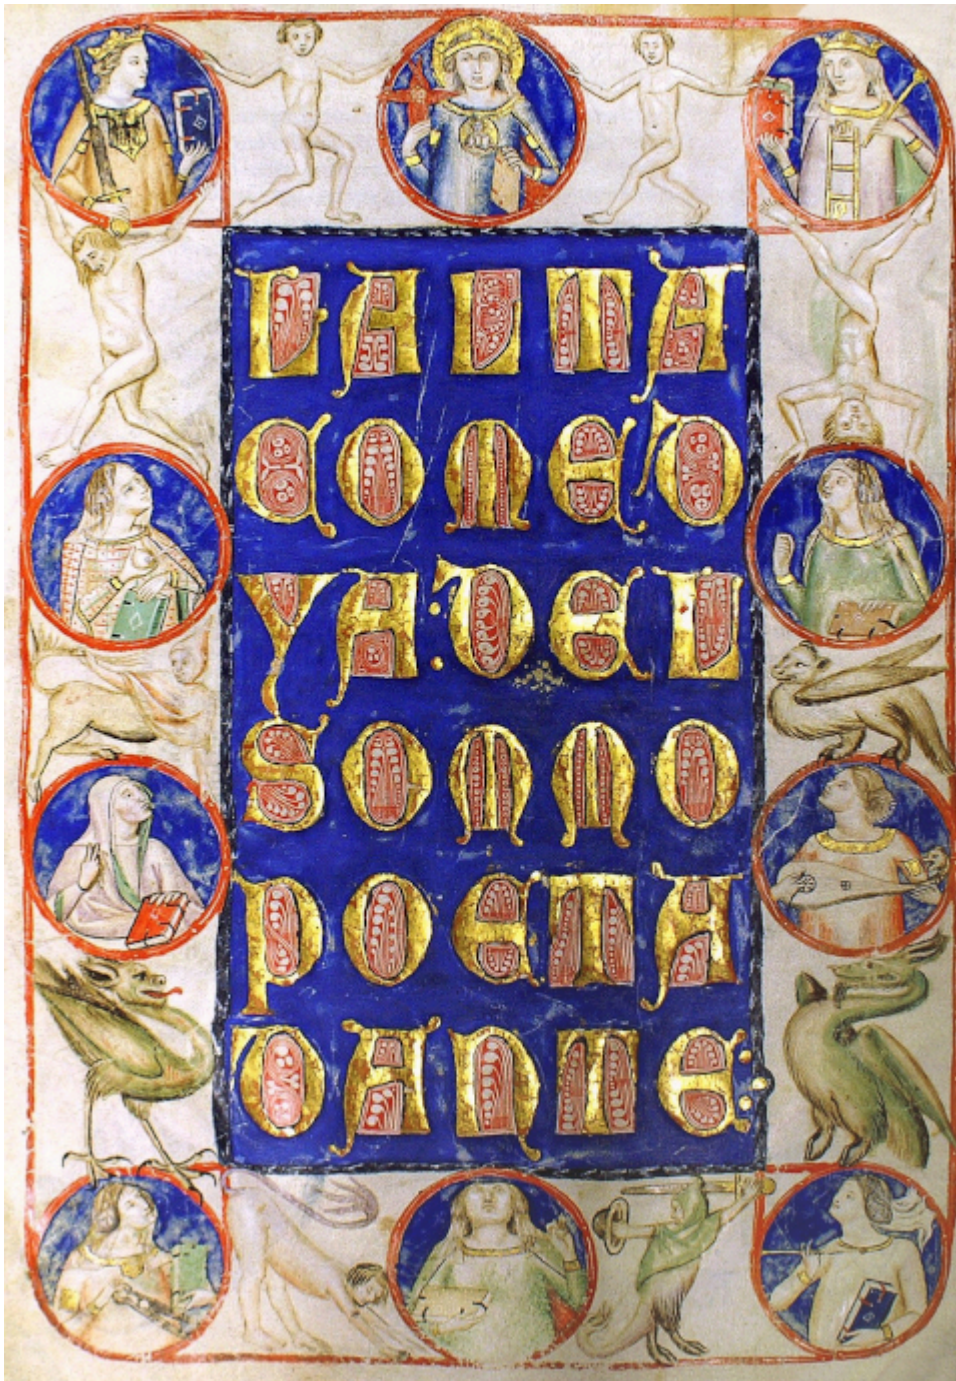 LALTA
COMED
YA:DEL
SOMMO
POETA
DANTE: